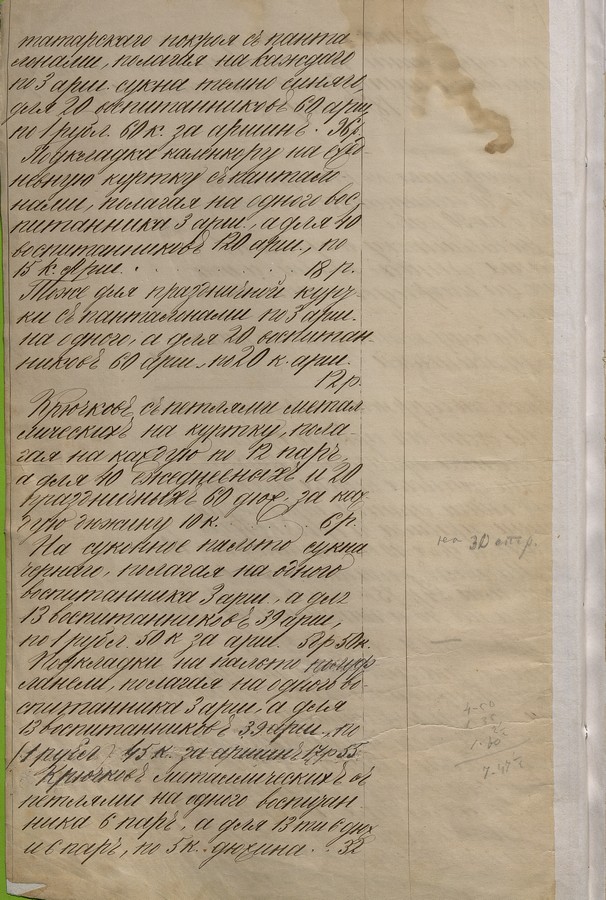 татарскаго покроя съ панта
лонами, полагая на каждаго
по 3 арш. сукна темно синяго
для 20 воспитанниковъ 60 арш,
по 1 рубл. 60 к. за аршинъ. 96 р.
Подкладка каленкору на суко-
нную куртку съ пантало-
нами, полагая на одного вос-
питанника 3 арш., а для 40
воспитанниковъ 120 арш., по
15 к. арш. . . . . . . 18 р.
Тоже для праздничной курт-
ки съ панталонами по 3 арш.
на одного, а для 20 воспитан-
никовъ 60 арш., по 20 к. арш.
12 р.
Крючковъ съ петлями метал-
лическихъ на куртку, пола-
гая на каждую по 12 паръ,
а для 40 ежедневныхъ и 20
праздничныхъ 60 дюж. за каж-
дую дюжину 10 к. . . . 6 р.
На суконное пальто сукна
чернаго, полагая на одного
воспитанника 3 арш., а для
13 воспитанниковъ 39 арш,
по 1 рубл. 50 к за арш. 58 р 50 к.
Подкладки на пальто
полагая на одного во-
спитанника 3 арш., а для
13 воспитанниковъ 39 арш., по
45 к. за аршинъ 17 р 55
Крючковъ металлическихъ съ
петлями на одного воспитан
ника 6 паръ, а для 13 ти 6 дюж
и 6 паръ, по 5 к. дюжина . . 32
на 30 стр.